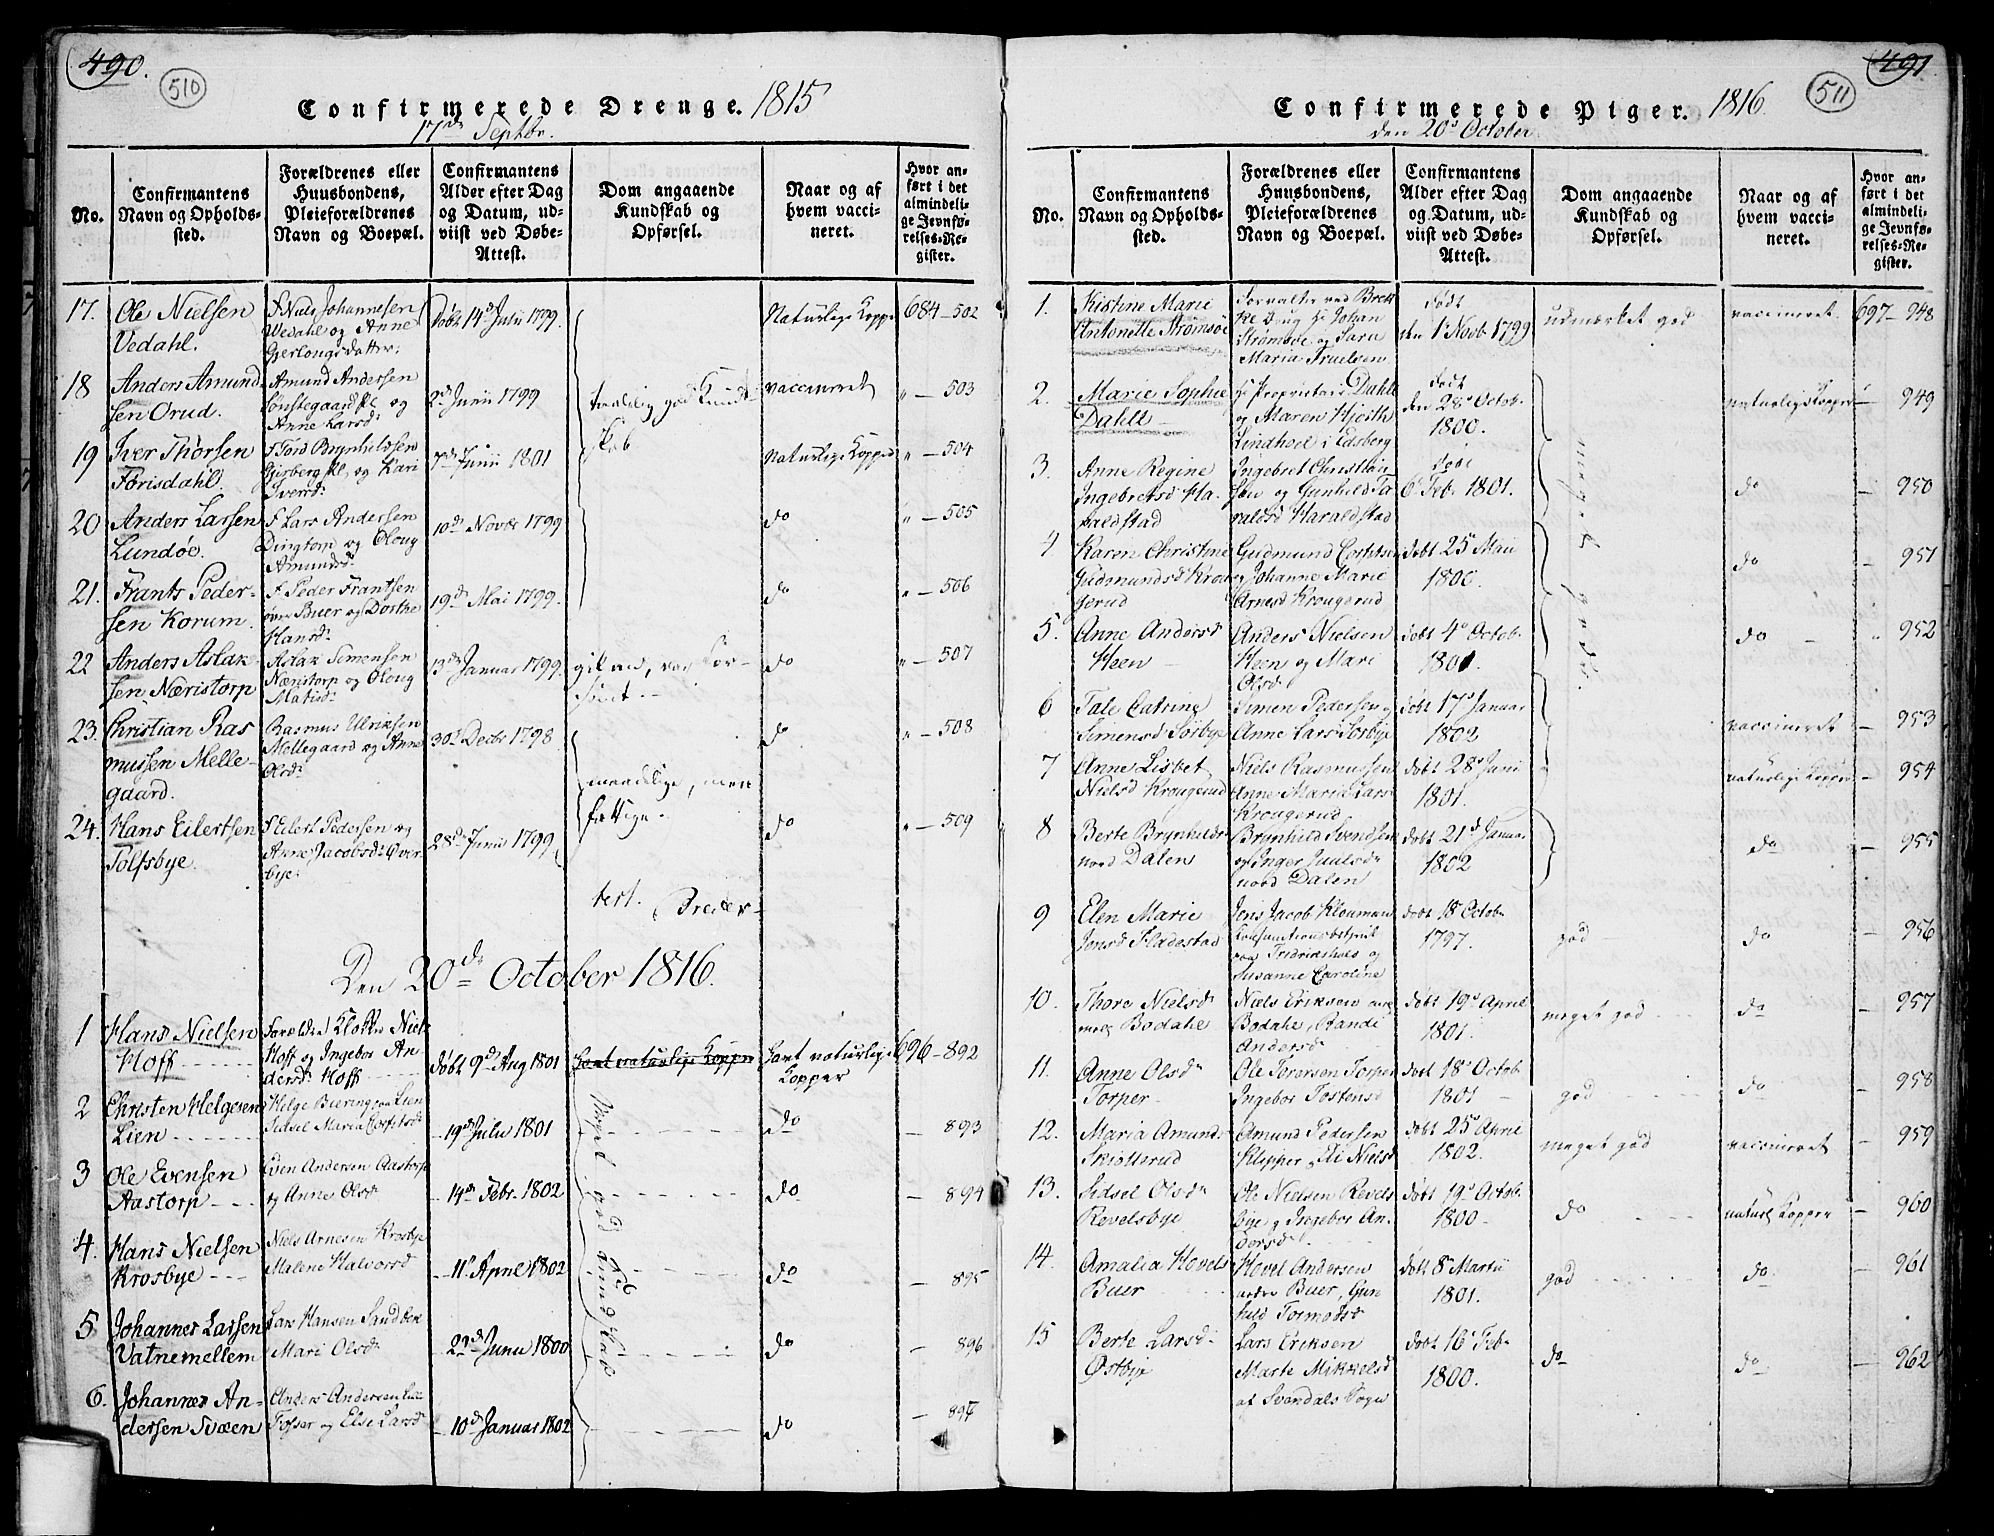 490.
510
Confirmerede Drenge. 1815
17de Septbr.
No.
Confirmantens
Navn og Opholds-
sted.
Forældrenes eller
Huusbondens,
Pleieforældrenes
Navn og Boepæl.
Confirmantens
Alder efter Dag
og Datum, ud-
viist ved Døbe-
Attest.
Dom angaaende
Kundskab og
Opførsel.
Naar og af
hvem vacci-
neret.
Hvor an-
ført i det
almindeli-
ge Jevnfø-
relses-Re-
gister.
17.
Ole Nielsen
Vedahl.
F Niels Johannesen
Wedahl og Anne
Gjerlougsdatter:
Døbt 14d Julii 1799.
Naturlige Kopper
684 - 502
18
Anders Amund-
sen Orud.
Amund Andersen
Sønstegaard og
Anne Larsd:
2d Junii 1799
god Kund-
skab
vaccineret
" - 503
19
Iver Thorsen
Torisdahl.
F Tord Brynhildsen
og Kari
Iversd:
7d Junii 1801
Naturlige Kopper
" - 504
20
Anders Larsen
Lundøe.
F Lars Andersen
Dingtorp og Oloug
Amundsd:
10d Novbr 1799
do
" - 505
21.
Frants Peder-
sen Korum.
F Peder Frantsen
Buer og Dorthe
Hansd:
19d Mai 1799.
do
" - 506
22
Anders Aslak-
sen Næristorp
Aslak Simensen
Næristorp og Oloug
Matisd:
13d Januar 1799.
do
" - 507
23.
Christian Ras
mussen Melle-
gaard.
Rasmus Ulriksen
Mellegaard og Anne
Olsd:
30d Decbr 1798
maadelige, men
flittige.
do
" - 508
24.
Hans Eilertsen
Tolfsbye.
F Eilert Pedersen og
Anne Jacobsd: Over-
bye:
28d Junii 1799
do
" - 509
test. Breder
Den 20de October 1816.
1
Hans Nielsen
Hoff
Forældre Klokker Niels
Hoff og Ingebor An-
dersd: Hoff
døbt 9d Aug 1801
havt naturlige Kopper
havt naturlige
Kopper
696 - 892
2
Christen Helgesen
Lien
Helge Biering paa Lien
Sidsel Maria
19d Julii 1801
Meget god Kundskab
do
- 893
3
Ole Evensen
Aastorp
Even Andersen Aastorp
og Anne Olsd:
14d Febr. 1802
do
- 894
4.
Hans Nielsen
Krosbye
Niels Arnesen Krosbye
Malene Halvorsd
11d April 1802
do
- 895
5
Johannes Larsen
Vatnemellem
Lars Hansen Sandber
Mari Olsd:
2d Junii 1800
do
- 896
6.
Johannes An-
dersen Svæen
Anders Andersen
og Else Larsd:
10d Januar 1802
do
- 897
491
511
Confirmerede Piger. 1816
den 20d October
No.
Confirmantens
Navn og Opholds-
sted.
Forældrenes eller
Huusbondens,
Pleieforældrenes
Navn og Boepæl.
Confirmantens
Alder efter Dag
og Datum, ud-
viist ved Døbe-
Attest.
Dom angaaende
Kundskab og
Opførsel.
Naar og af
hvem vacci-
neret.
Hvor an-
ført i det
almindeli-
ge Jevnfø-
relses-Re-
gister.
1.
Kistine Marie
Antonette Strømsøe
Forvalter ved Brek
ke Brug Hr Johan
Strømsøe og Sara
Maria Truelsen
Født
den 1 Novb 1799
udmærket god
vaccineret
697 - 948
2.
Marie Sophie
Dahll
Hr Proprietair Dahll
og Maren Hjorth
Lindhoel i Edsberg
født
den 28d Octob.
1800.
meget gode.
naturlige Kopper
- 949
3.
Anne Regine
Ingebretsd Ha-
raldstad
Ingebret Christian-
sen og Gunhild Ha-
raldsd Haraldstad
døbt
6d Feb. 1801.
do
- 950
4
Karen Christine
Gudmundsd Krou-
gerud
Gudmund
og Johanne Marie
Arnesd Krougerud
døbt 25d Maii
1800.
do
- 951
5.
Anne Andersd
Heen
Anders Nielsen
Heen og Mari
Olsd:
døbt 4d Octob.
1801.
do
" 952
6
Tale Catrine
Simensd Sorbye
Simen Pedersen og
Anne Larsd Sorbye
døbt 17d Januar
1802
vaccineret
- 953
7
Anne Lisbet
Nielsd Krougerud
Niels Rasmussen
Anne Marie Larsd
Krougerud
døbt 28d Juni
1801.
naturlige Kopper
- 954
8
Berte Brynhilds
nord Dalen
Brynhild Svendsen
og Inger Juulsd:
nord Dalen
døbt 21d Januar
1802
do
- 955
9
Elen Marie
Jensd Fladestad
Jens Jacob Klouman
Consumtionsbetjent
paa Fredrikshald og
Susanne Caroline
døbt 18 Octob.
1797.
god
do
- 956
10.
Thore Nielsd
Bodahl
Niels Eriksen
Bodahl, Randi
Andersd
døbt 19d April
1801.
meget god
do
- 957
11.
Anne Olsd
Torper
Ole Torersen Torper
Ingebor Tostensd
døbt 18d Octob.
1801
god
do
- 958
12.
Maria Amunds
Skiotterud
Amund Pedersen
Klepper, Nielsd
døbt 25d April
1802.
meget god
vaccineret
- 959
13.
Sidsel Olsd
Revelsbye
Ole Nielsen Revels
bye og Ingebor An-
dersd
døbt 19d Octob.
1800
do
naturl Kopper
- 960
14.
Amalia Hovels
Buer
Hovel Andersen
nedre Buer, Gun
hild Tormodsd
døbt 8d Martii
1801.
god
do
- 961
15
Berte Larsd
Østbye
Lars Eriksen
Marte Mikkelsd
af Svendals Sogn
døbt 16d Feb.
1800.
do
do
- 962